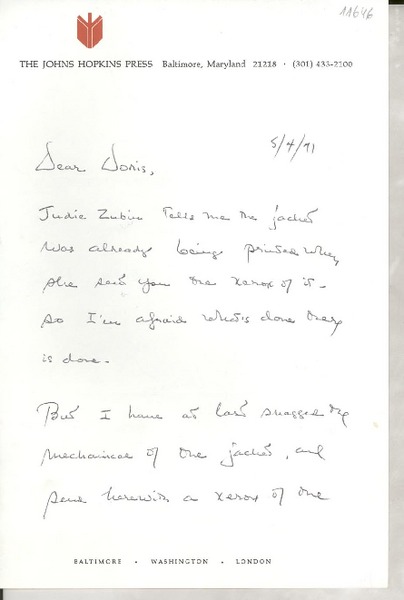 11646
THE JOHNS HOPKINS PRESS Baltimore, Maryland 21218 · (301) 433-2100
5/4/71
Dear Doris,
Judie Zubin tells me the jacket
was already being printed when
she sent you the xerox of it -
so I'm afraid what's done there
is done.
But I have at last snagged the
mechanical of the jacket, and
send herewith a xerox of the
BALTIMORE · WASHINGTON · LONDON